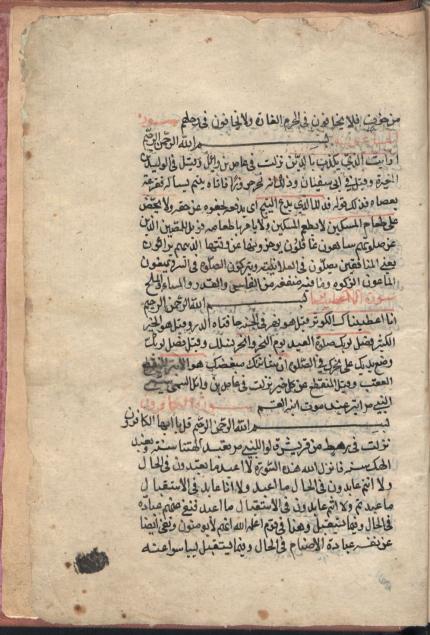 من خوف فلا يخافون في الحرم الغارة ولا يخافون في رحلتهم سورة
بسم الله الرحمن الرحيم
ارايت الذي يكذب بالدين نزلت في عاص بن وائل وقيل في الوليد بن
المغيرة وقيل في ابي سفيان وذلك انه نحر جزورا فاتاه يتيم يسأله فقرعه
بعصاه فذلك الذي يدع اليتيم اي يدفعه عن حقه ولا يحض
على طعام المسكين لا يطعم المسكين ولا يامر باطعامه فويل للمصلين الذين
عن صلوتهم ساهون غافلون يؤخرونها عن وقتها الذين هم يراؤن
يعني المنافقين يصلون في العلانية ويتركون الصلوة في السر ويمنعون
الماعون الزكوة وما فيه منفعة من الفاس والقدر والماء والملح
سورة انا اعطيناك بسم الله الرحمن الرحيم
انا اعطيناك الكوثر قيل هو نهر في الجنة حافتاه الدر وقيل هو الخير
الكثير فصل لربك صلاة العيد يوم النحر وانحر نسكك وقيل فصل لربك
وضع يديك على نحرك في الصلوة ان شانئك مبغضك هو الابتر
العقب وقيل المنقطع عن كل خير نزلت في عاص بن وائل سمى
النبي ابتر عند موت ابنه القسم سورة الكافرون
بسم الله الرحمن الرحيم قل يا ايها الكافرون
نزلت في رهط من قريش قالوا للنبي تعبد الهتنا سنة ونعبد
الهك سنة فانزل الله هذه السورة لا اعبد ما تعبدون في الحال
ولا انتم عابدون في الحال ما اعبد ولا انا عابد في الاستقبال
ما عبدتم ولا انتم عابدون في الاستقبال ما اعبد فنفى عنهم عبادة
في الحال وفيما يستقبل وهذا في قوم اعلمه الله انهم لا يومنون ونفى ايضا
عن نفسه عبادة الاصنام في الحال وفيما يستقبل